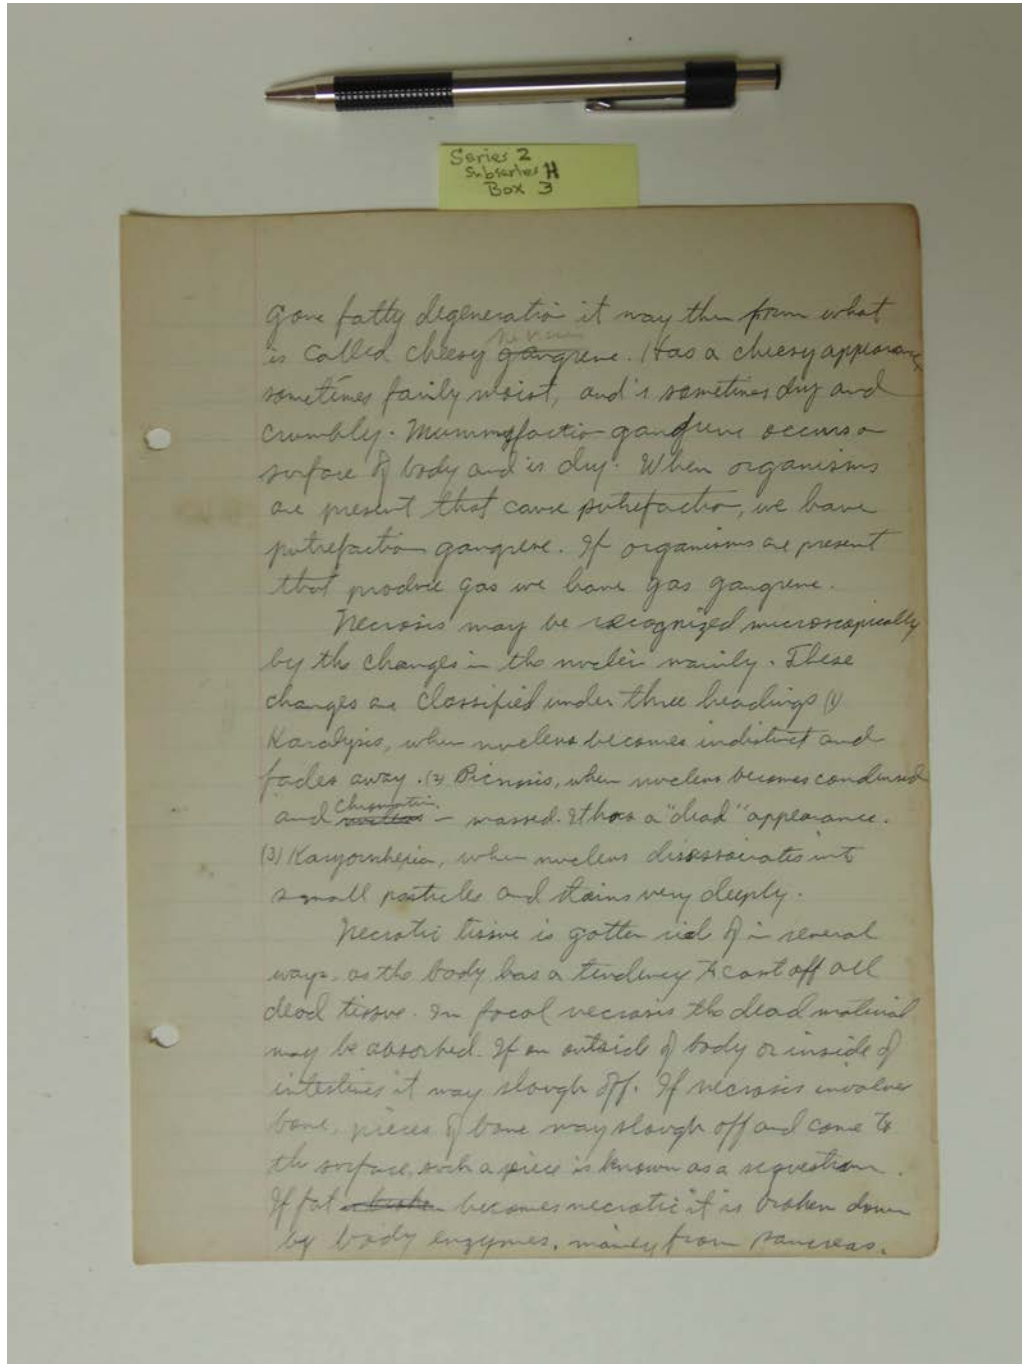 Series 2
Subseries H
Box 3
gone fatty degeneration it may then form what
is called cheesy gangrene. Has a cheesy appearance,
sometimes fairly moist, and is sometimes dry and
crumbly. Mummyfactio gangrene occurs on
surface of body and is dry. When organisms
are present that cause putrefaction, we have
putrefaction gangrene. If organisms are present
that produce gas we have gas gangrene.
Necrosis may be recognized microscopically
by the changes in the nuclei mainly. These
changes are classified under three headings (1)
Karalysis, when nucleus becomes indistinct and
fades away. (2) Picnosis, when nucleus becomes condensed
and chromatin massed. It has a "dead" appearance.
(3) Karyorrhexia, when nucleus disassociates into
small particles and stains very deeply.
Necrotic tissue is gotten rid of in several
ways, as the body has a tendency to cast off all
dead tissue. In focal necrosis the dead material
may be absorbed. If on outside of body or inside of
intestines it may slough off. If necrosis involves
bone, pieces of bone may slough off and come to
the surface, such a piece is known as a sequestrum.
If fat becomes necrotic it is broken down
by body enzymes, mainly from pancreas.